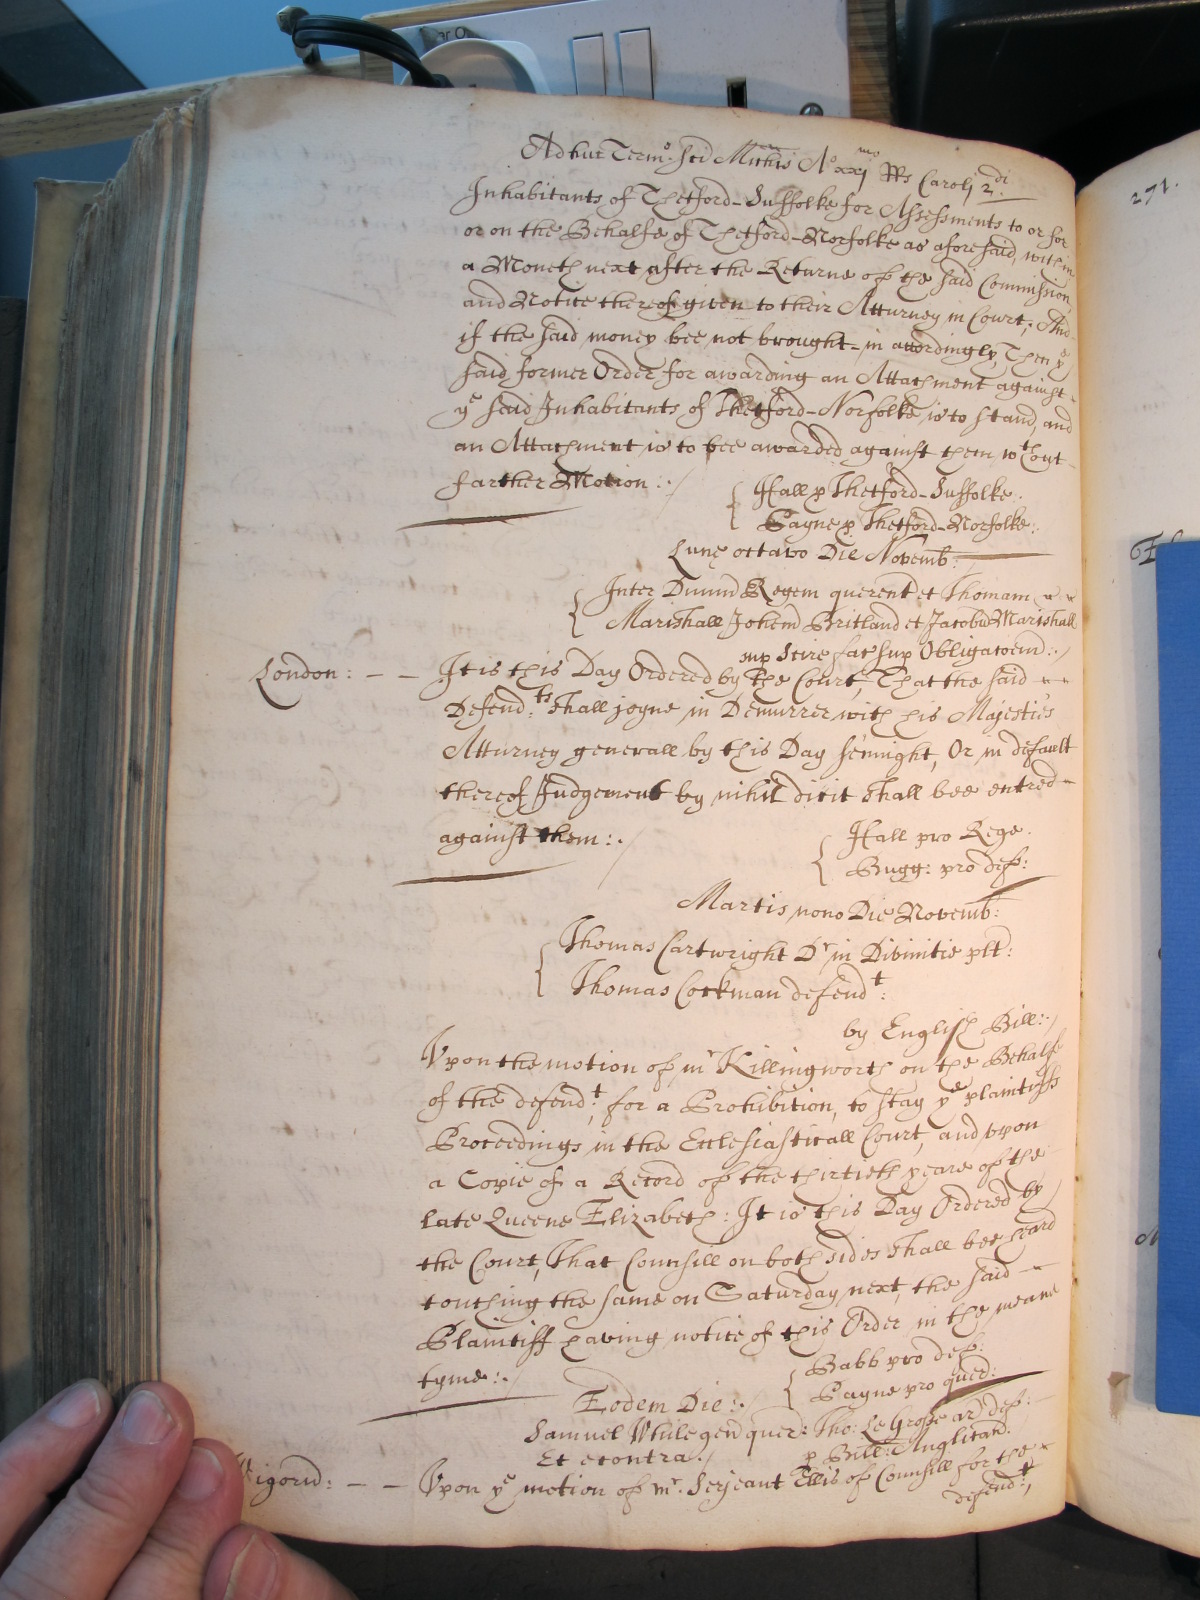 Adhuc Termo: sci Michis Ao xxjmo Rs Carolj 2di
Inhabitants of Thetford-Suffolke for Assessments to or for
or on the Behalfe of Thetford-Norfolke as aforesaid, within
a Moneth next after the Returne of the said Commission,
and Notice thereof given to their Atturney in Court; And
if the said money bee not brought in accordingly, Then ye
said former Order for awarding an Attachment against
ye said Inhabitants of Thetford-Norfolke is to stand, and
an Attachment is to bee awarded against them wthout
farther Motion:
Hall p Thetford-Suffolke.
Payne p Thetford-Norfolke:
Lune octavo Die Novemb:
Inter Dnum Regem querent et Thomam
Marshall Johem Britland et Jacobu Marshall
sup Scire fac sup Obligatoem:
London: It is this Day Ordered by the Court, That the said
Defend:ts shall joyne in Demurrer with his Majesties
Atturney generall by this Day sennight, Or in default
thereof Judgement by nihil dicit shall bee entred
against them:
Hall pro Rege.
Bugg: pro def:
Martis nono Die Novemb:
Thomas Cartwright Dr in Divinitie plt:
Thomas Cockman defendt:
by English Bill:
Vpon the motion of mr Killingworth on the Behalfe
of the defend:t, for a Prohibition, to stay ye plaintiffs
Proceedings in the Ecclesiasticall Court, and vpon
a Copie of a Record of the thirtieth yeare of the
late Queene Elizabeth: It is this Day Ordered by
the Court, That Counsill on both sides shall bee heard
touching the same on Saturday next, the said
Plaintiff having notice of this Order in the meane
tyme:
Babb pro def:
Payne pro quer:
Eodem Die:
Samuel While gen quer: Tho: Le Grosse ar def:
Et econtra. p Bill: Anglican:
igorn: Vpon ye motion of mr. Serjeant Ellis of Counsill for the
defend:t,
271.